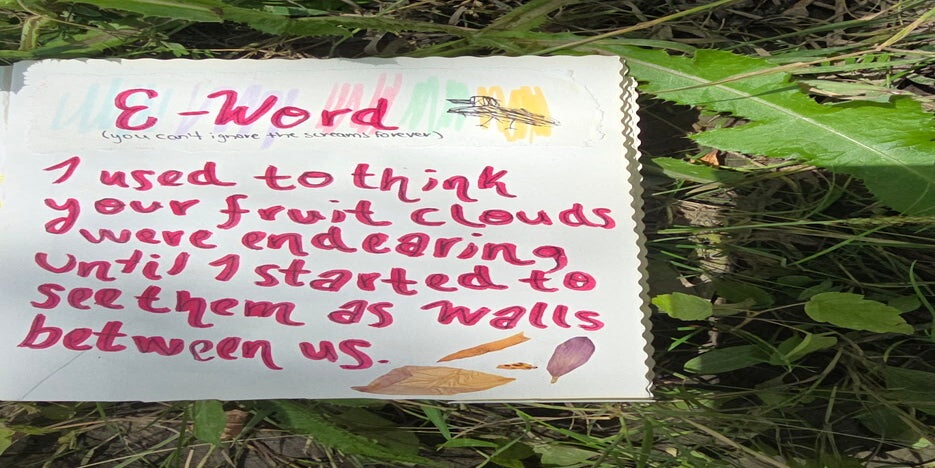 E-Word
(you can't ignore the screams forever)
I used to think
your fruit clouds
were endearing
until I started to
see them as walls
between us.